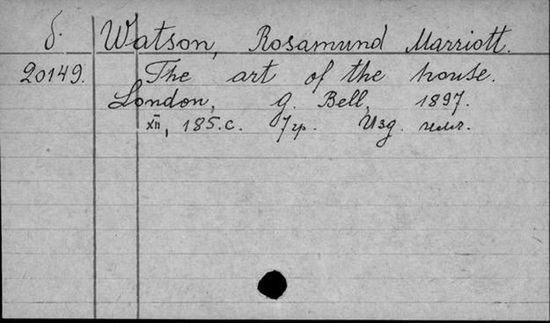 б. Watson, Rosamund Marriott.
20149. The art of the house.
London, G. Bell, 1897.
XII, 185.с. 7гр. Изд.